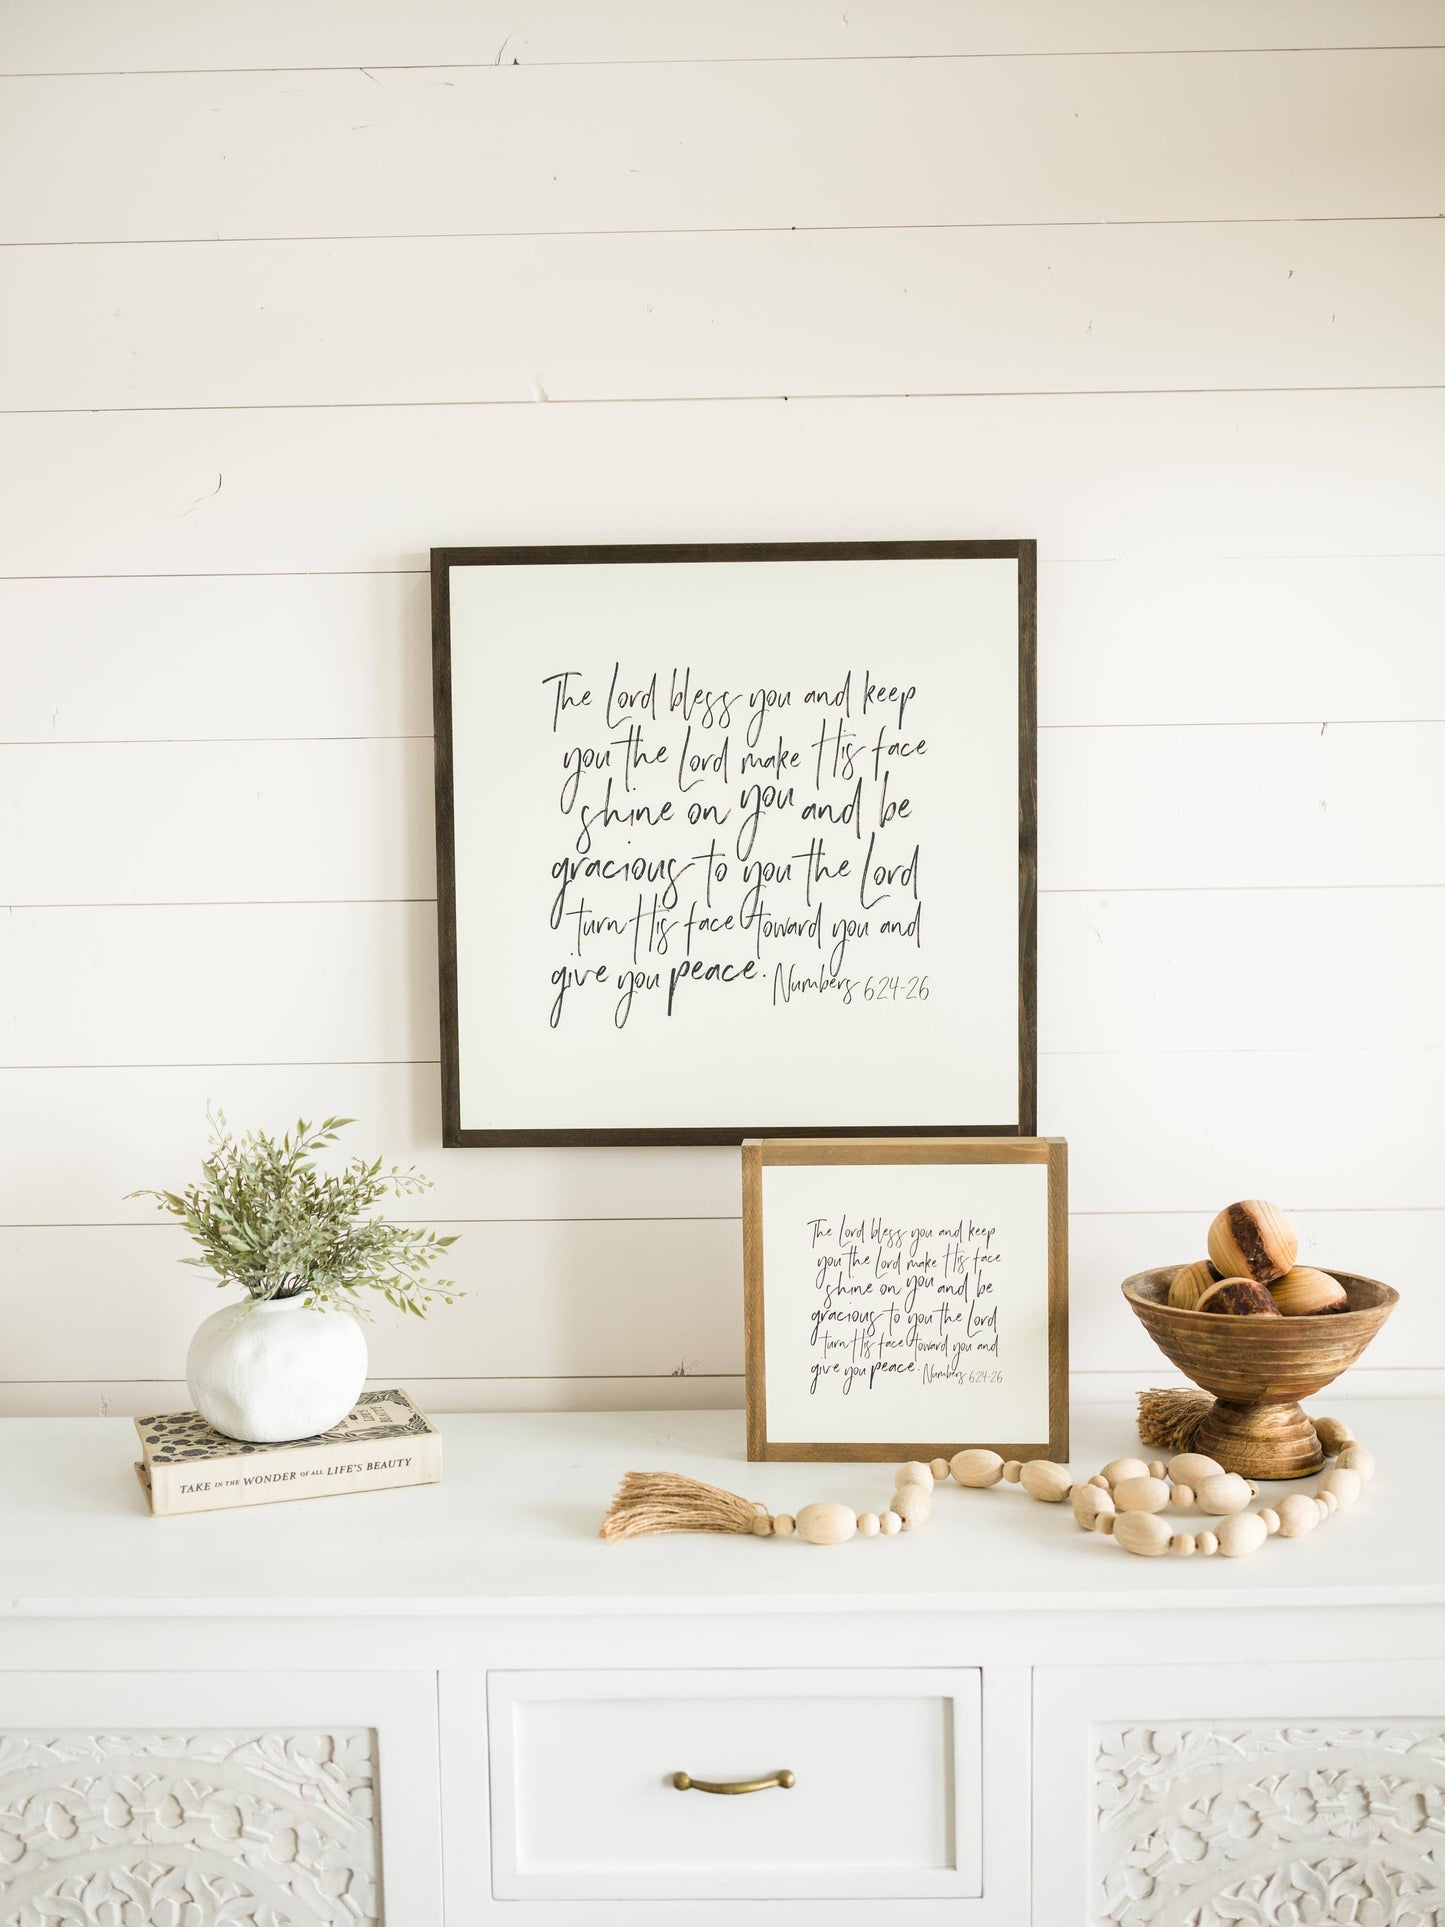 The Lord bless you and keep
you the Lord make His face
shine on you and be
gracious to you the Lord
turn His face toward you and
give you peace. Numbers 6:24-26
The Lord bless you and keep
you the Lord make His face
shine on you and be
gracious to you the Lord
turn His face toward you and
give you peace. Numbers 6:24-26
TAKE IN THE WONDER OF ALL LIFE'S BEAUTY